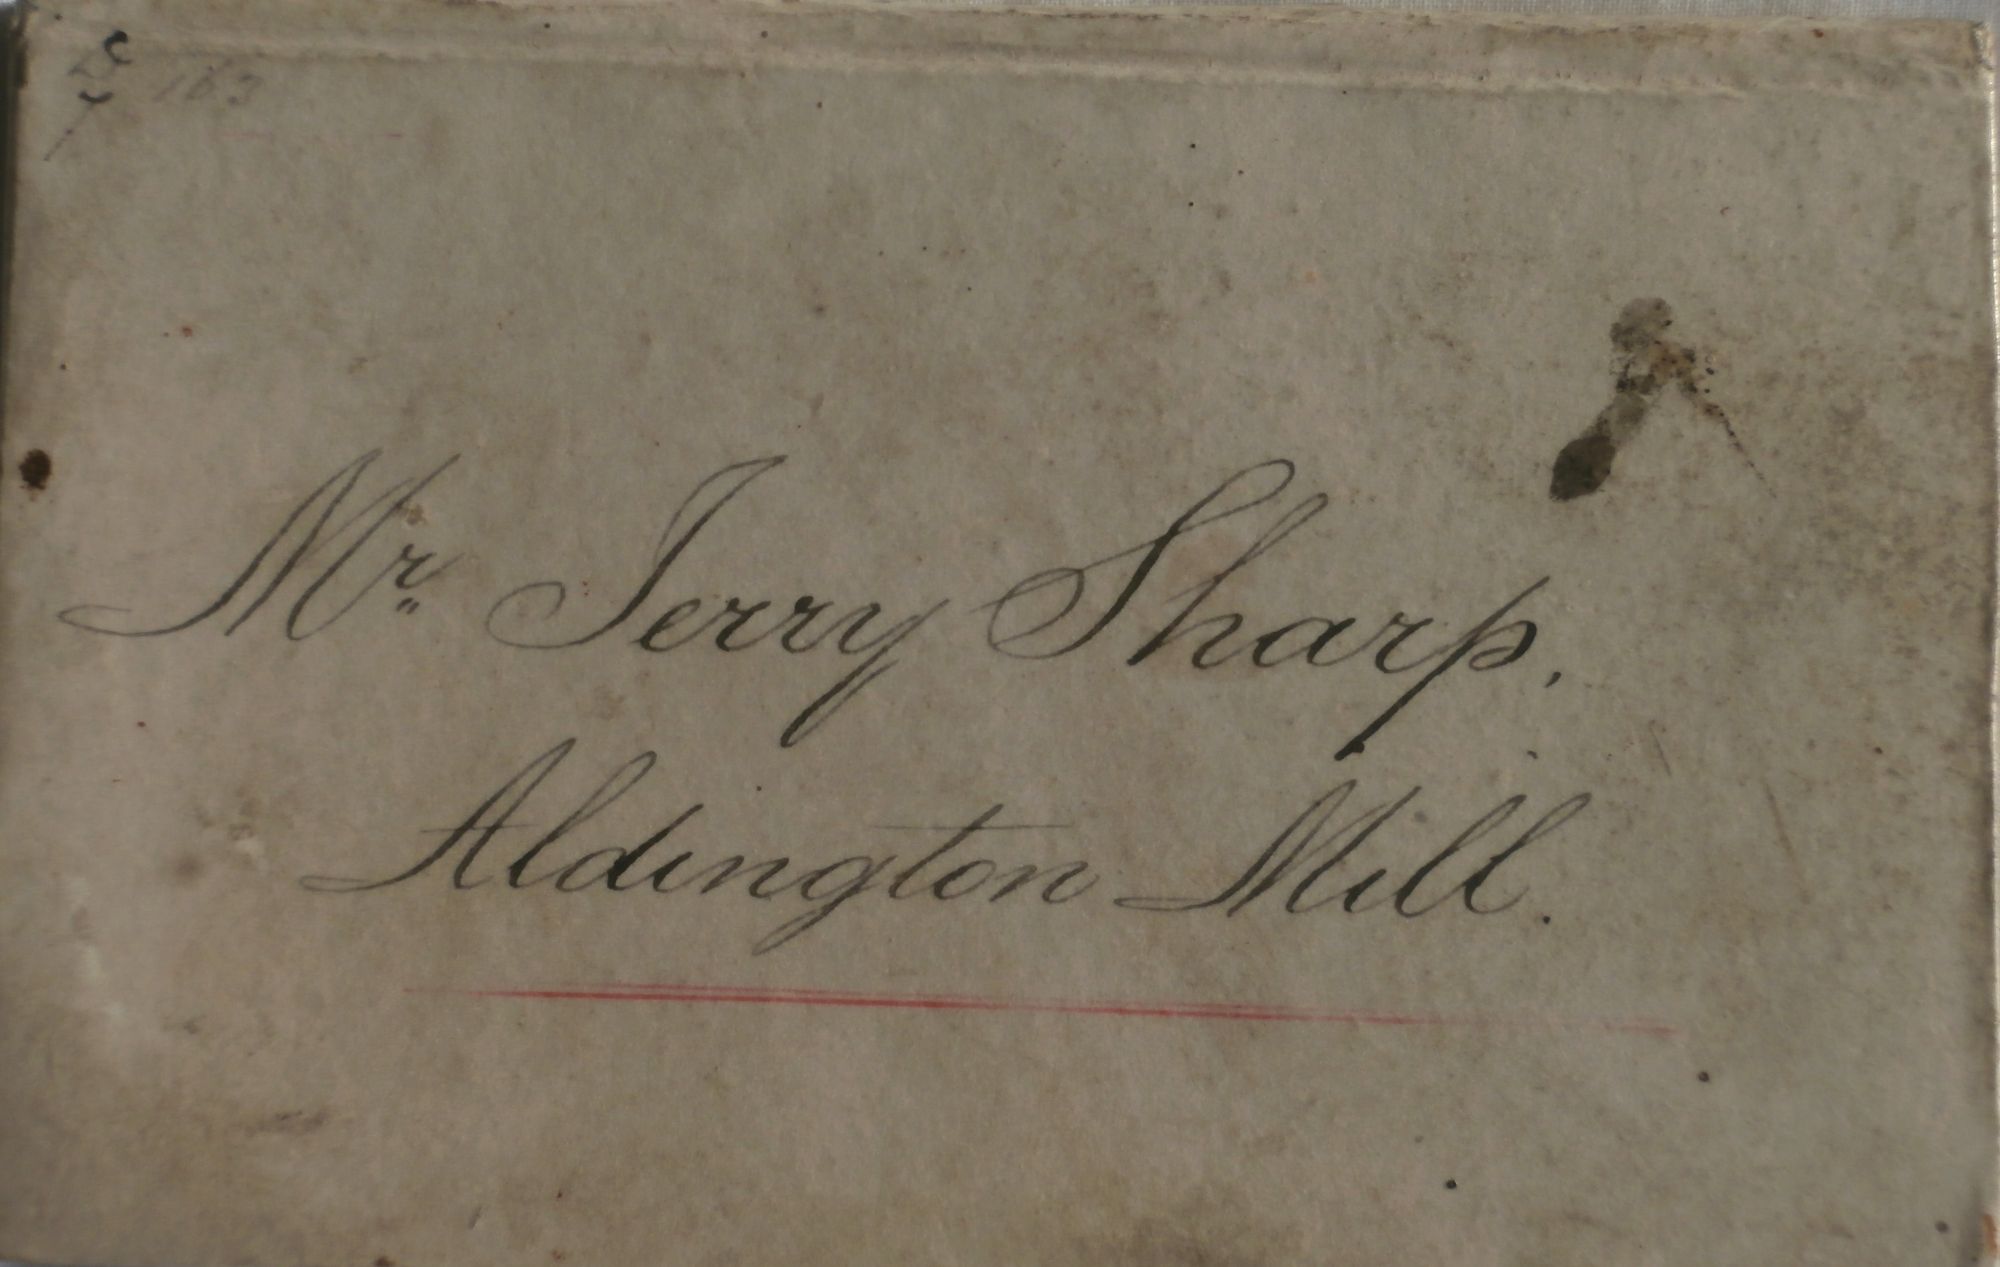 163
Mr. Jerry Sharp.
Aldington Mill.